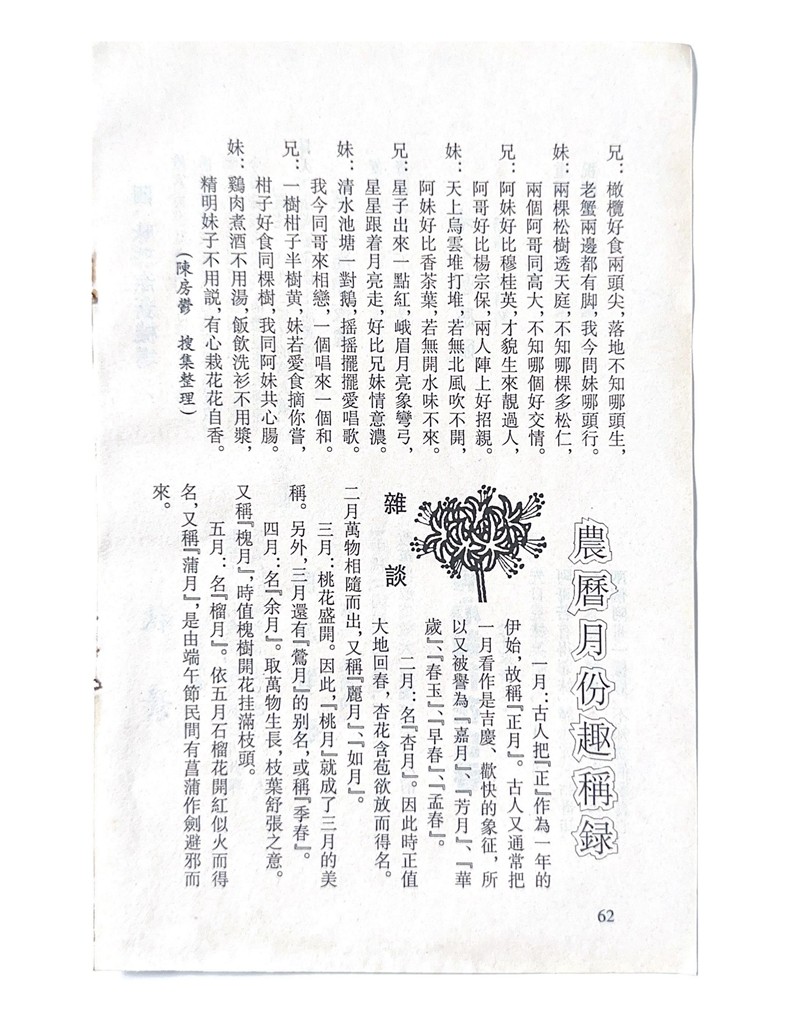 兄：橄欖好食兩頭尖，落地不知哪頭生，
老蟹兩邊都有脚，我今問妹哪頭行。
妹：兩棵松樹透天庭，不知哪棵多松仁，
兩個阿哥同高大，不知哪個好交情。
兄：阿妹好比穆桂英，才貌生來靚過人，
阿哥好比楊宗保，兩人陣上好招親。
妹：天上烏雲堆打堆，若無北風吹不開，
阿妹好比香茶葉，若無開水味不來。
兄：星子出來一點紅，峨眉月亮象彎弓，
星星跟着月亮走，好比兄妹情意濃。
妹：清水池塘一對鵝，摇摇擺擺愛唱歌。
我今同哥來相戀，一個唱來一個和。
兄：一樹柑子半樹黄，妹若愛食摘你嘗，
柑子好食同棵樹，我同阿妹共心腸。
妹：鷄肉煮酒不用湯，飯飲洗衫不用漿，
精明妹子不用説，有心栽花花自香。
（陳房鬱　搜集整理）
農曆月份趣稱録
雜談
一月：古人把『正』作為一年的
伊始，故稱『正月』。古人又通常把
一月看作是吉慶、歡快的象征，所
以又被譽為『嘉月』、『芳月』、『華
歲』、『春玉』、『早春』、『孟春』。
二月：名『杏月』。因此時正值
大地回春，杏花含苞欲放而得名。
二月萬物相隨而出，又稱『麗月』、『如月』。
三月：桃花盛開。因此，『桃月』就成了三月的美
稱。另外，三月還有『鶯月』的别名，或稱『季春』。
四月：名『余月』。取萬物生長，枝葉舒張之意。
又稱『槐月』，時值槐樹開花挂滿枝頭。
五月：名『榴月』。依五月石榴花開紅似火而得
名，又稱『蒲月』，是由端午節民間有菖蒲作劍避邪而
來。
62